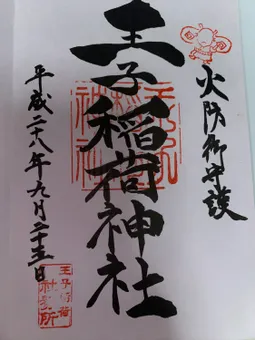 火防御守護
王子稲荷神社
平成二十八年九月二十五日
王子稲荷
社務所